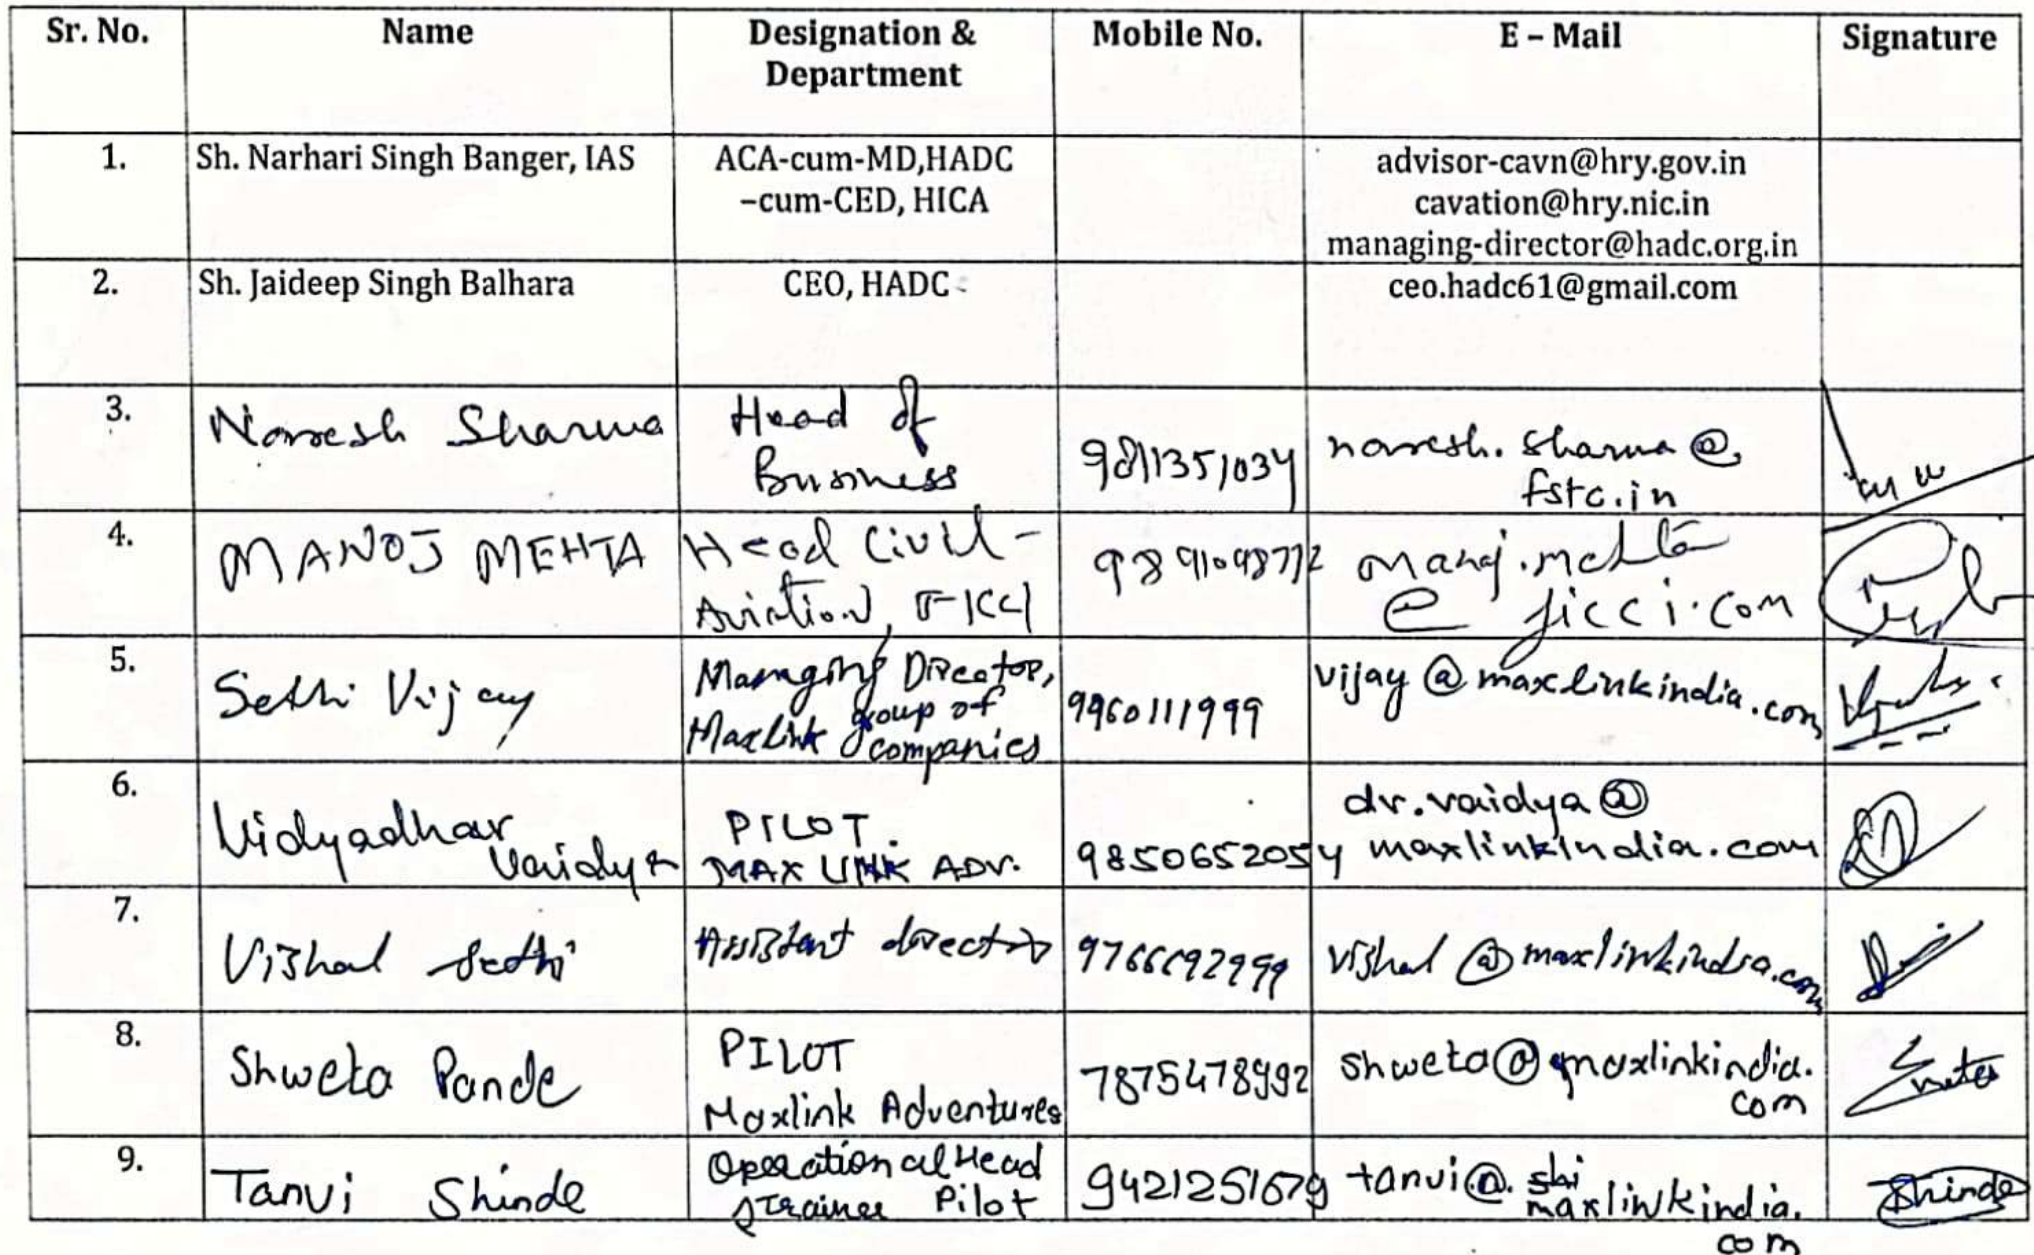 Sr. No. Name Designation & Department Mobile No. E – Mail Signature
1. Sh. Narhari Singh Banger, IAS ACA-cum-MD,HADC
–cum-CED, HICA
advisor-cavn@hry.gov.in
cavation@hry.nic.in
managing-director@hadc.org.in
2. Sh. Jaideep Singh Balhara CEO, HADC ceo.hadc61@gmail.com
3. Naresh Sharma
Head of
Business
9811351034
naresh.sharma@
fstc.in
4. MANOJ MEHTA
Head Civil -
Aviation, FICCI
manoj.mehta
@ ficci.com
5. Sethi Vijay
Managing Director,
Maxlink group of
companies
9960111999
vijay@maxlinkindia.com
6. Vidyadhar
Vaidya
PILOT
MAX LINK ADV.
9850652054
dr.vaidya@
maxlinkindia.com
7. Vishal Sethi
Assistant director
vishal@maxlinkindia.com
8. Shweta Pande
PILOT
Maxlink Adventures
shweta@maxlinkindia.
com
9. Tanvi Shinde
Operational Head
Trainee Pilot
9421251679
tanvi@
maxlinkindia.
com
Shinde